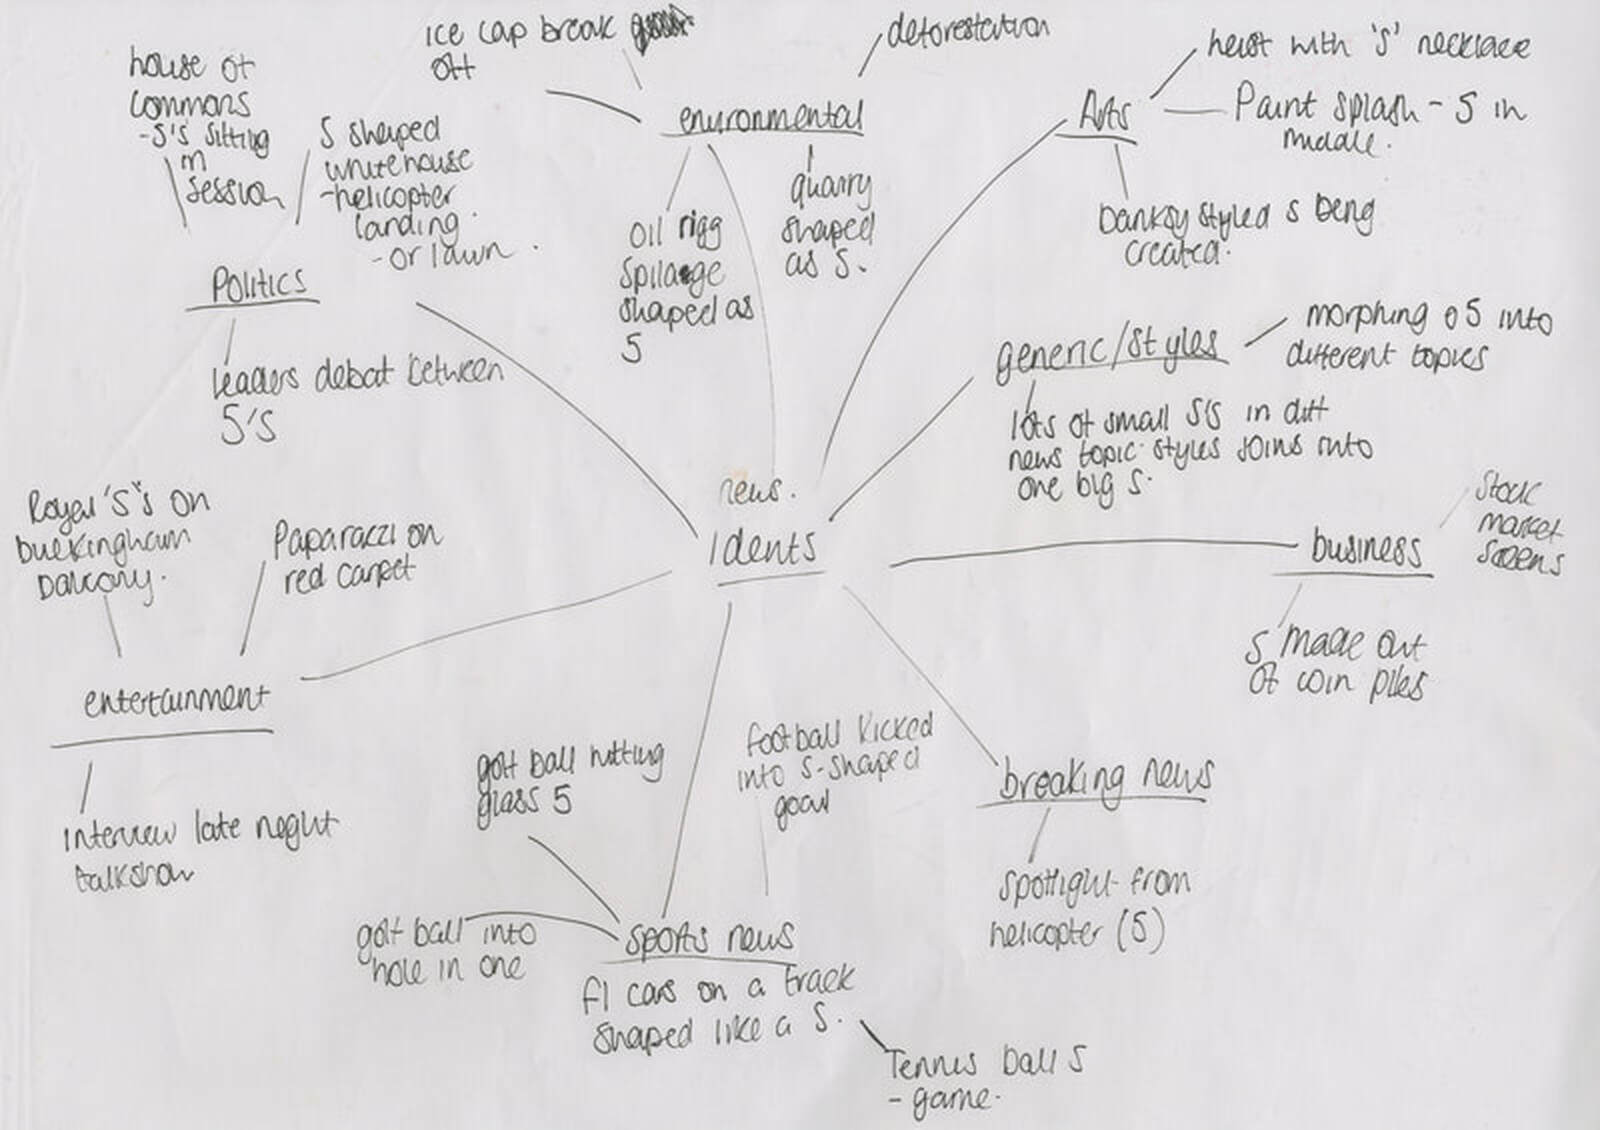 house of
commons
-5's sitting
in
session
5 shaped
whitehouse
-helicopter
landing.
- or lawn.
Politics
leaders debat between
5's
ice cap break
off
deforestation
environmental
oil rigg
spilage
shaped as
5
quarry
shaped
as 5.
Arts
heist with '5' necklace
Paint splash - 5 in
middle.
Banksy styled 5 being
created.
generic/styles
morphing o 5 into
different topics
lots of small 5's in diff
news topic styles joins into
one big 5.
news.
idents
business
stock
market
screens
5 made out
of coin piles
Royal '5's on
buckingham
balcony.
Paparazzi on
red carpet
entertainment
interview late neght
talkshow
golf ball hitting
glass 5
football kicked
into 5-shaped
goal
breaking news
spotlight from
helicopter (5)
golf ball into
hole in one
sports news
f1 cars on a track
shaped like a 5.
Tennis ball 5
- game.